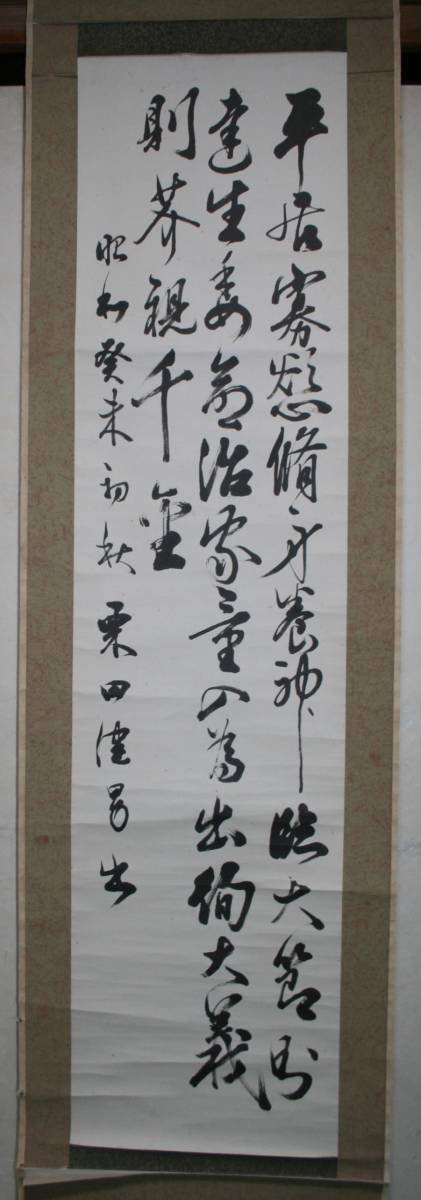 平居寡慾脩身養神臨大節則
達生委命治家量入為出徇大義
則芥視千金
昭和癸未初秋 栗田